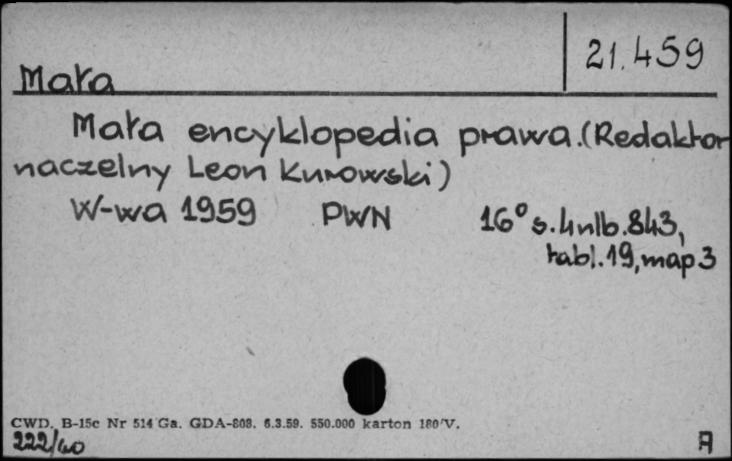 21.459
Mała
Mała encyklopedia prawa. (Redaktor
naczelny Leon Kurowski)
W-wa 1959 PWN 16° s. 4nlb. 843,
tabl. 19, map 3
CWD. B-15c Nr 514 Ga. GDA-808. 6.3.59. 550.000 karton 180/V.
222/60
A